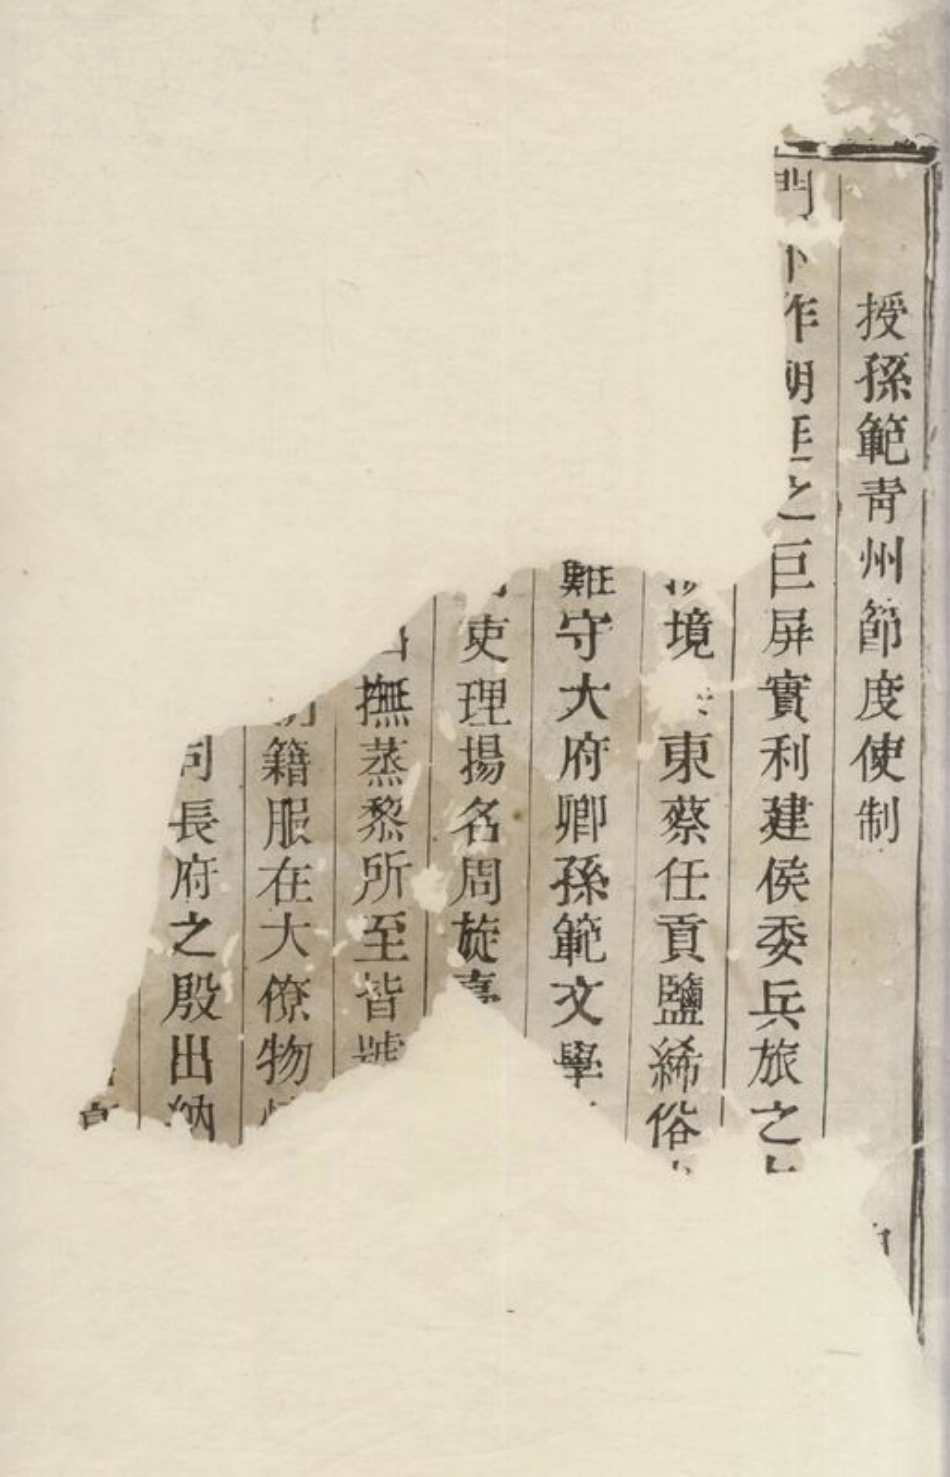 授孫範青州節度使制
門下作朝廷之巨屏實利建侯委兵旅之
境東蔡任貢鹽絺俗
難守大府卿孫範文學
吏理揚名周旋臺
撫蒸黎所至皆號
籍服在大僚物
同長府之殷出納